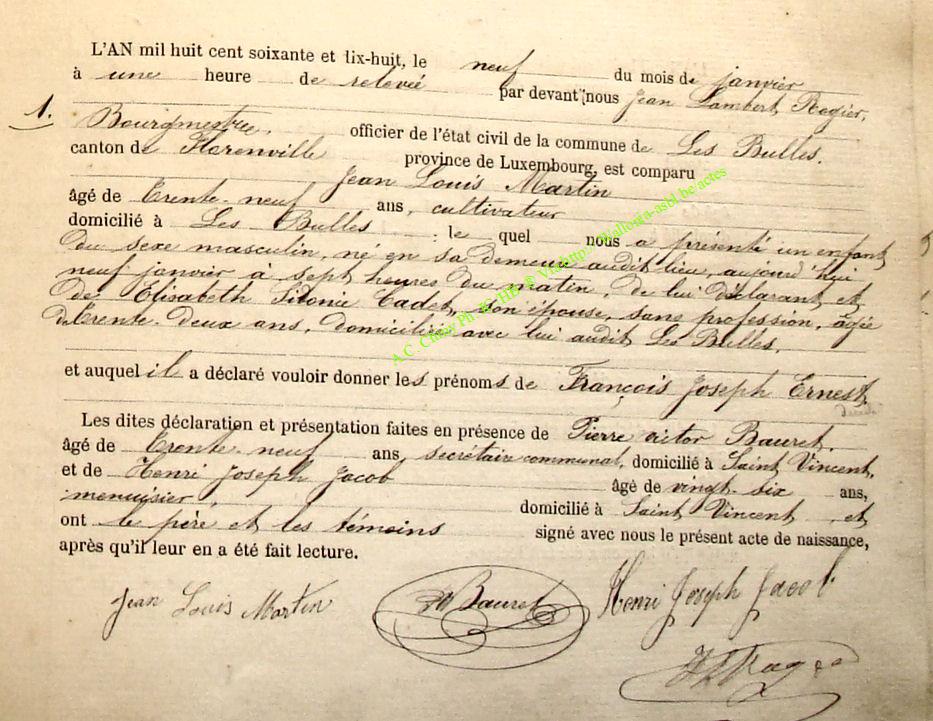 L'AN mil huit cent soixante et dix-huit, le neuf du mois de janvier
à une heure de relevée par devant nous Jean Lambert Rogier,
1. Bourgmestre, officier de l'état civil de la commune de Les Bulles.
canton de Florenville province de Luxembourg, est comparu
Jean Louis Martin
âgé de trente-neuf ans, cultivateur
domicilié à Les Bulles : le quel nous a présenté un enfant
du sexe masculin, né en sa demeure audit lieu, aujourd'hui
neuf janvier à sept heures du matin, de lui déclarant et
de Elisabeth Sidonie Cadet, son épouse, sans profession, agée
de trente-deux ans, domiciliée avec lui audit Les Bulles.
et auquel il a déclaré vouloir donner les prénoms de François Joseph Ernest
Les dites déclaration et présentation faites en présence de Pierre Victor Bauret
âgé de trente neuf ans, secrétaire communal, domicilié à Saint Vincent,
et de Henri Joseph Jacob âgé de vingt-six ans,
menuisier, domicilié à Saint Vincent et
ont le père et les témoins signé avec nous le présent acte de naissance,
après qu'il leur en a été fait lecture.
Jean Louis Martin Bauret Henri Joseph Jacob